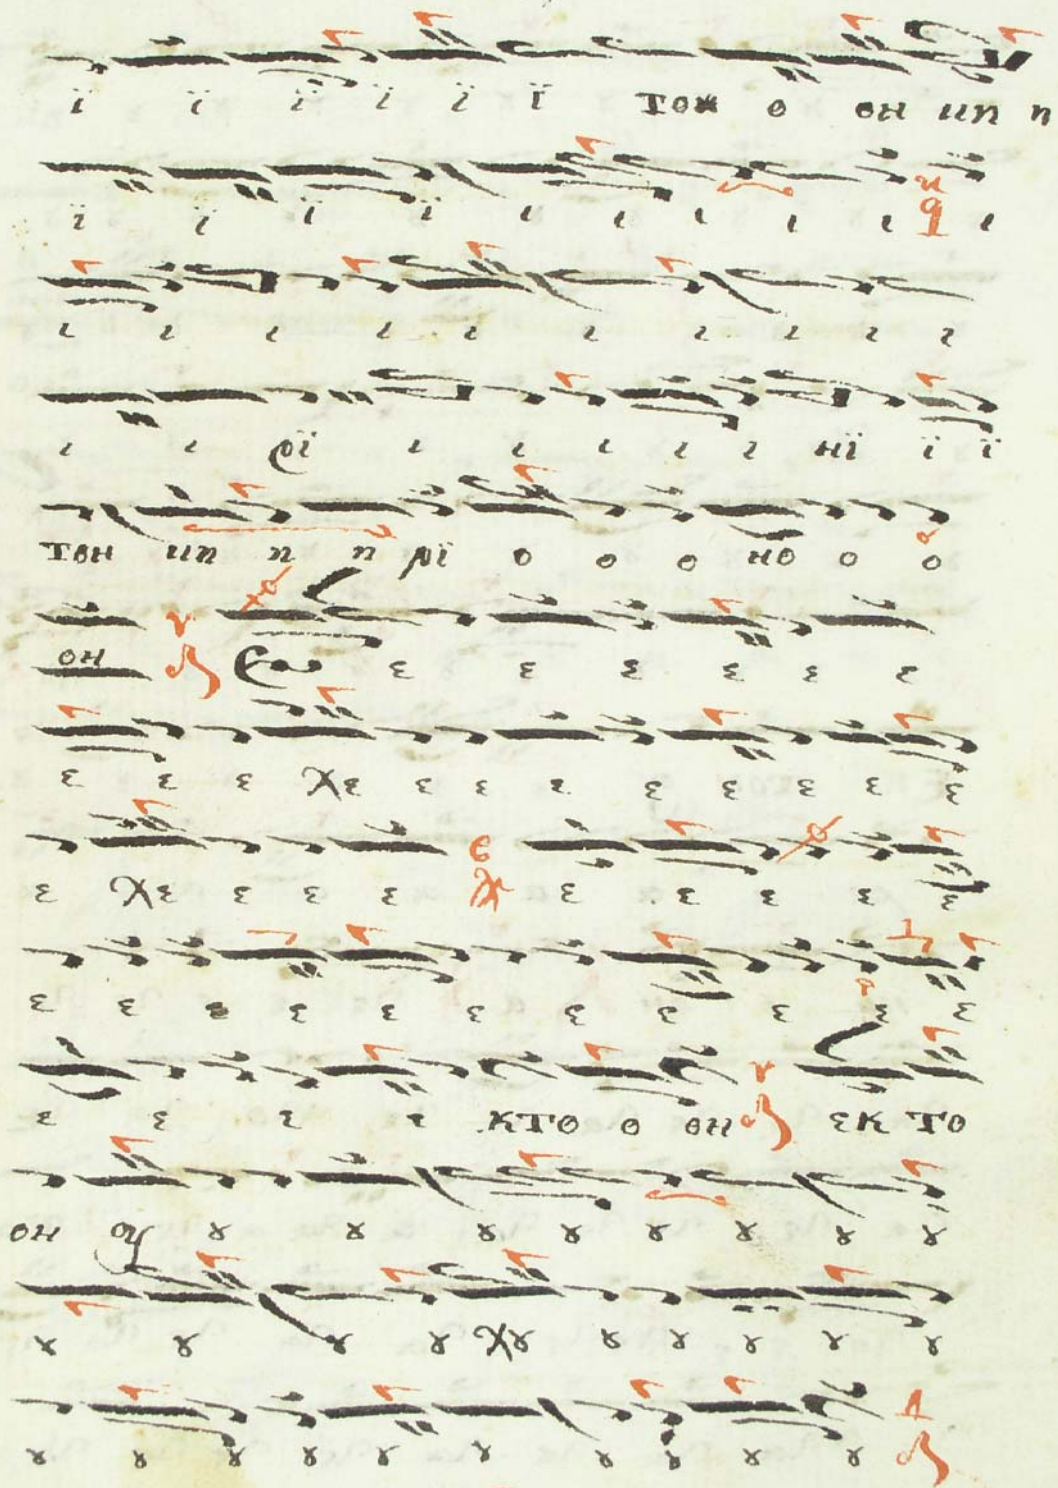 ϊ ϊ ϊ ϊ ϊ ϊ τον ο ον μπ π
ϊ ϊ ϊ ϊ ι ι ι ι ι ι
ι ι ι ι ι ι ι ι ι ι
ι ι ρϊ ι ι ι ι ι νϊ ϊ ϊ
τον μπ π π ρϊ ο ο ο νο ο ο
ον Εω ε ε ε ε ε ε
ε ε ε χε ε ε ε ε ε ε ε ε
ε χε ε ε ε ε ε ε ε ε
ε ε ε ε ε ε ε ε ε ε ε
ε ε ε ε κτο ο ον εκ το
ον ου ȣ ȣ ȣ ȣ ȣ ȣ ȣ ȣ
ȣ ȣ ȣ ȣ χȣ ȣ ȣ ȣ ȣ ȣ
ȣ ȣ ȣ ȣ ȣ ȣ ȣ ȣ ȣ ȣ